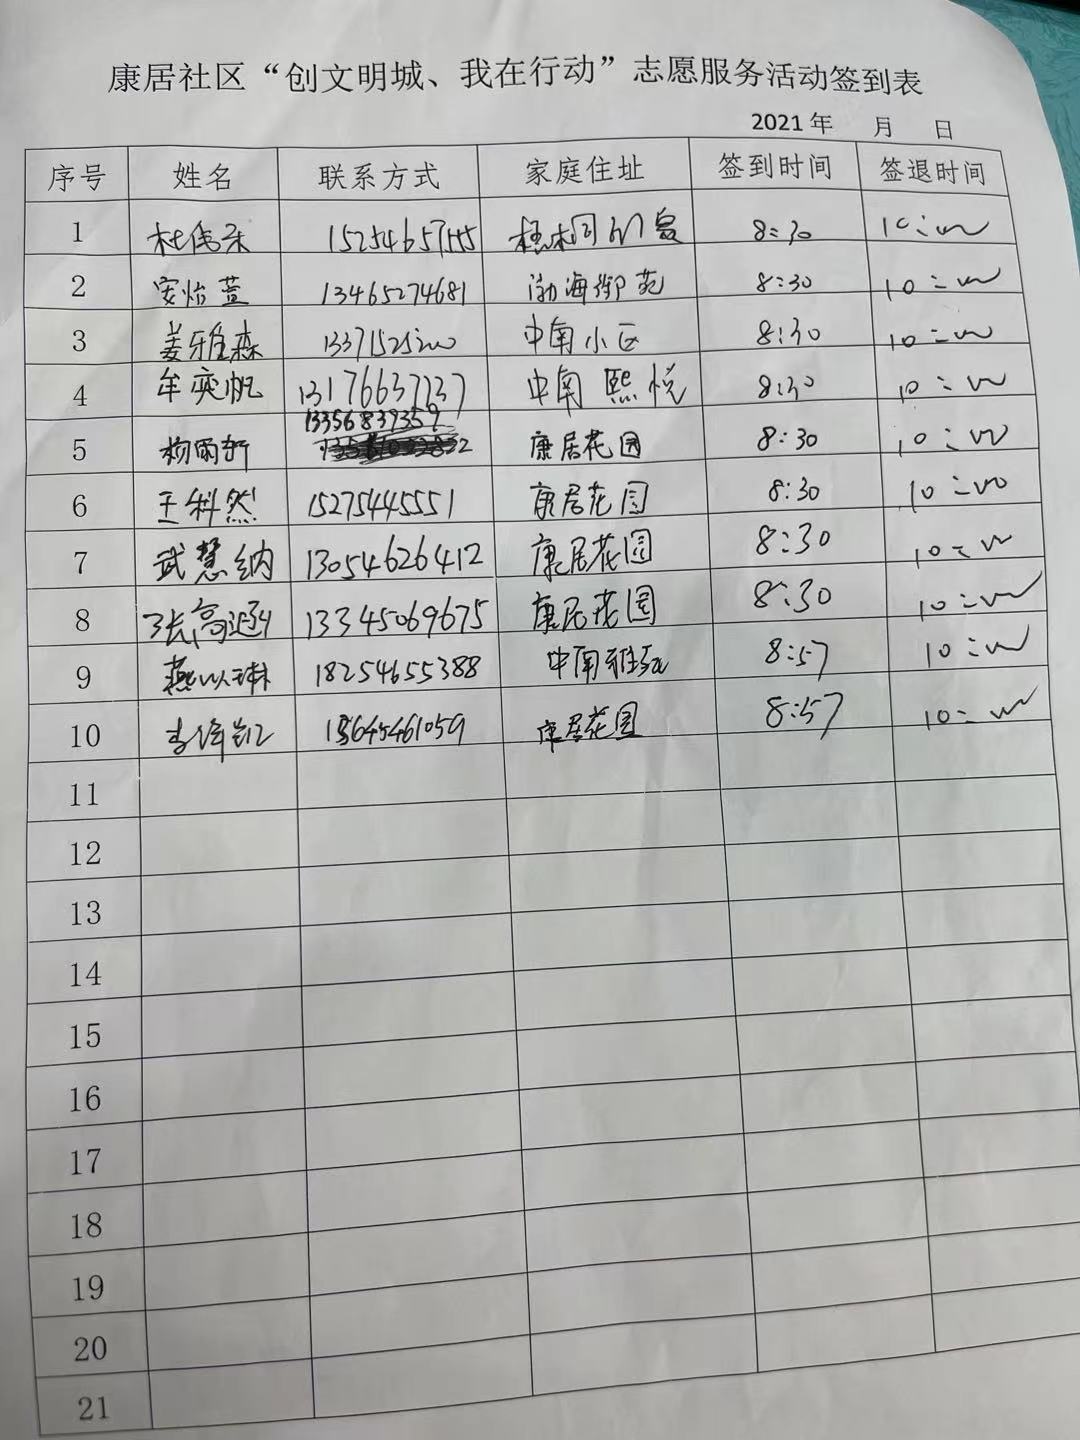 康居社区“创文明城、我在行动”志愿服务活动签到表
2021年 月 日
序号 姓名 联系方式 家庭住址 签到时间 签退时间
1 杜 15254657555 8:30 10:00
2 安怡萱 13465274681 渤海御苑 8:30 10:00
3 姜雅森 13371525200 中南小区 8:30 10:00
4 牟奕帆 13176637737 中南熙悦 8:30 10:00
5 杨雨轩 13356839359 康居花园 8:30 10:00
6 王科然 15275445551 康居花园 8:30 10:00
7 武慧纳 13054626412 康居花园 8:30 10:00
8 张高 13345069675 康居花园 8:30 10:00
9 燕以琳 18254655388 中南雅苑 8:57 10:00
10 李 15645461059 康居花园 8:57 10:00
11
12
13
14
15
16
17
18
19
20
21